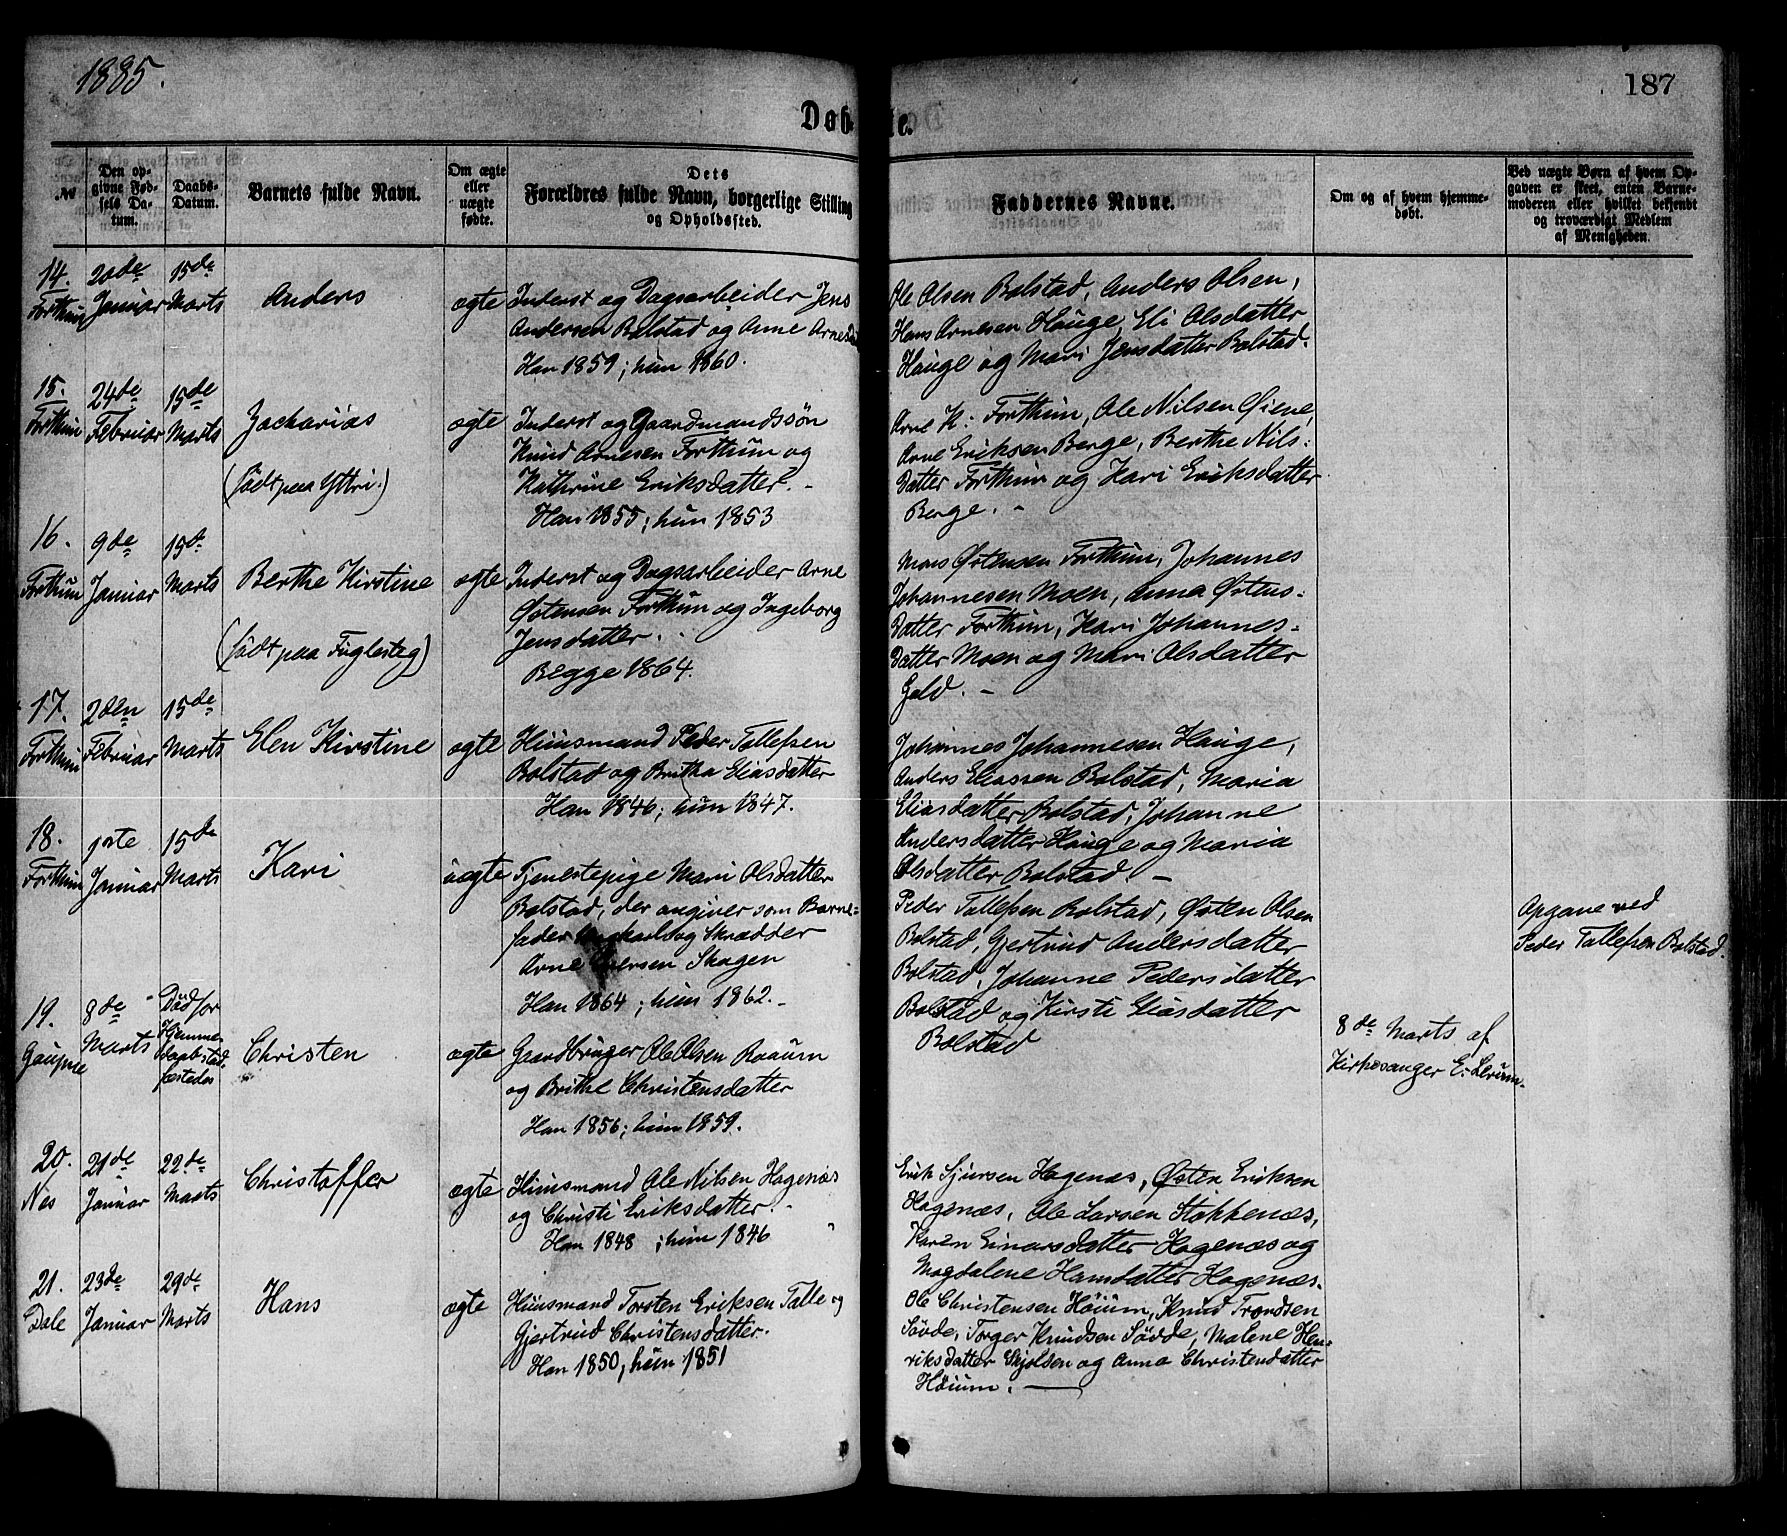 1885.
187
Døbte.
№
Den opgivne Fødsels Datum.
Daabs-Datum.
Barnets fulde Navn.
Om ægte eller uægte fødte.
Dets Forældres fulde Navn, borgerlige Stilling og Opholdssted.
Faddernes Navne.
Om og af hvem hjemmedøbt.
Ved uægte Børn af hvem Opgaven er skeet, enten Barnemoderen eller hvilket bekjendt og troværdigt Medlem af Menigheden.
14.
Forthun
20de
Januar
15de
Marts
Anders
ægte
Inderst og Dagsarbeider Jens
Andersen Bolstad og Anne Arnesd
Han 1859; hun 1860.
Ole Olsen Bolstad, Anders Olsen,
Hans Arnesen Hauge, Eli Olsdatter
Hauge og Mari Jensdatter Bolstad.
15.
Forthun
24de
Februar
15de
Marts
Zacharias
(født paa Yttri.)
ægte
Inderst og Gaardmandssøn
Knud Arnesen Forthun og
Kathrine Eriksdatter. -
Han 1855; hun 1853
Arne K: Forthun, Ole Nilsen Øiene,
Arne Eriksen Berge, Berthe Nils:
datter Forthun og Kari Eriksdatter
Berge. -
16.
Forthun
9de
Januar
15de
Marts
Berthe Kirstine
(født paa Fuglesteg)
ægte
Inderst og Dagsarbeider Arne
Østensen Forthun og Ingeborg
Jensdatter.
Begge 1864.
Mons Østensen Forthun, Johannes
Johannesen Moen, Anna Østens:
datter Forthun, Kari Johannes-
datter Moen og Mari Olsdatter
Geld. -
17.
Forthun
2den
Februar
15de
Marts
Elen Kirstine
ægte
Huusmand Peder Tollefsen
Bolstad og Britha Eliasdatter
Han 1846; hun 1847.
Johannes Johannesen Hauge,
Anders Eliassen Bolstad, Maria
Eliasdatter Bolstad, Johanne
Andersdatter Hauge og Maria
Olsdatter Bolstad. -
18.
Forthun
1ste
Januar
15de
Marts
Kari
uægte
Tjenestepige Mari Olsdatter
Bolstad, der angiver som Barne=
fader Ungkarl og Skrædder
Arne Iversen Skagen
Han 1864; hun 1862. -
Peder Tollefsen Bolstad, Østen Olsen
Bolstad, Gjertrud Andersdatter
Bolstad, Johanne Pedersdatter
Bolstad og Kirsti Eliasdatter
Bolstad
Opgave ved
Peder Tollefsen Bolstad.
19.
Gaupne
8de
Marts
Død før
Hjemme-
daabstad-
fæstedes
Christen
ægte
Gaardbruger Ole Olsen Raaum
og Brithe Christensdatter
Han 1856; hun 1859.
8de Marts af
Kirkesanger E. Lerum.
20.
Nes
21de
Januar
22de
Marts
Christoffer
ægte
Huusmand Ole Nilsen Hagenæs
og Christi Eriksdatter. -
Han 1848 ; hun 1846
Erik Sjursen Hagenæs, Østen Eriksen
Hagenæs, Ole Larsen Stokkenæs,
Karen Einarsdatter Hagenæs og
Magdalene Hansdatter Hagenæs.
21.
Dale
23de
Januar
29de
Marts
Hans
ægte
Huusmand Torsten Eriksen Talle og
Gjertrud Christensdatter.
Han 1850; hun 1851
Ole Christensen Høium, Knud Trondsen
Søvde, Torger Knudsen Sødde, Malene Hen-
riksdatter Skjolden og Anna Christendatter
Høium. -